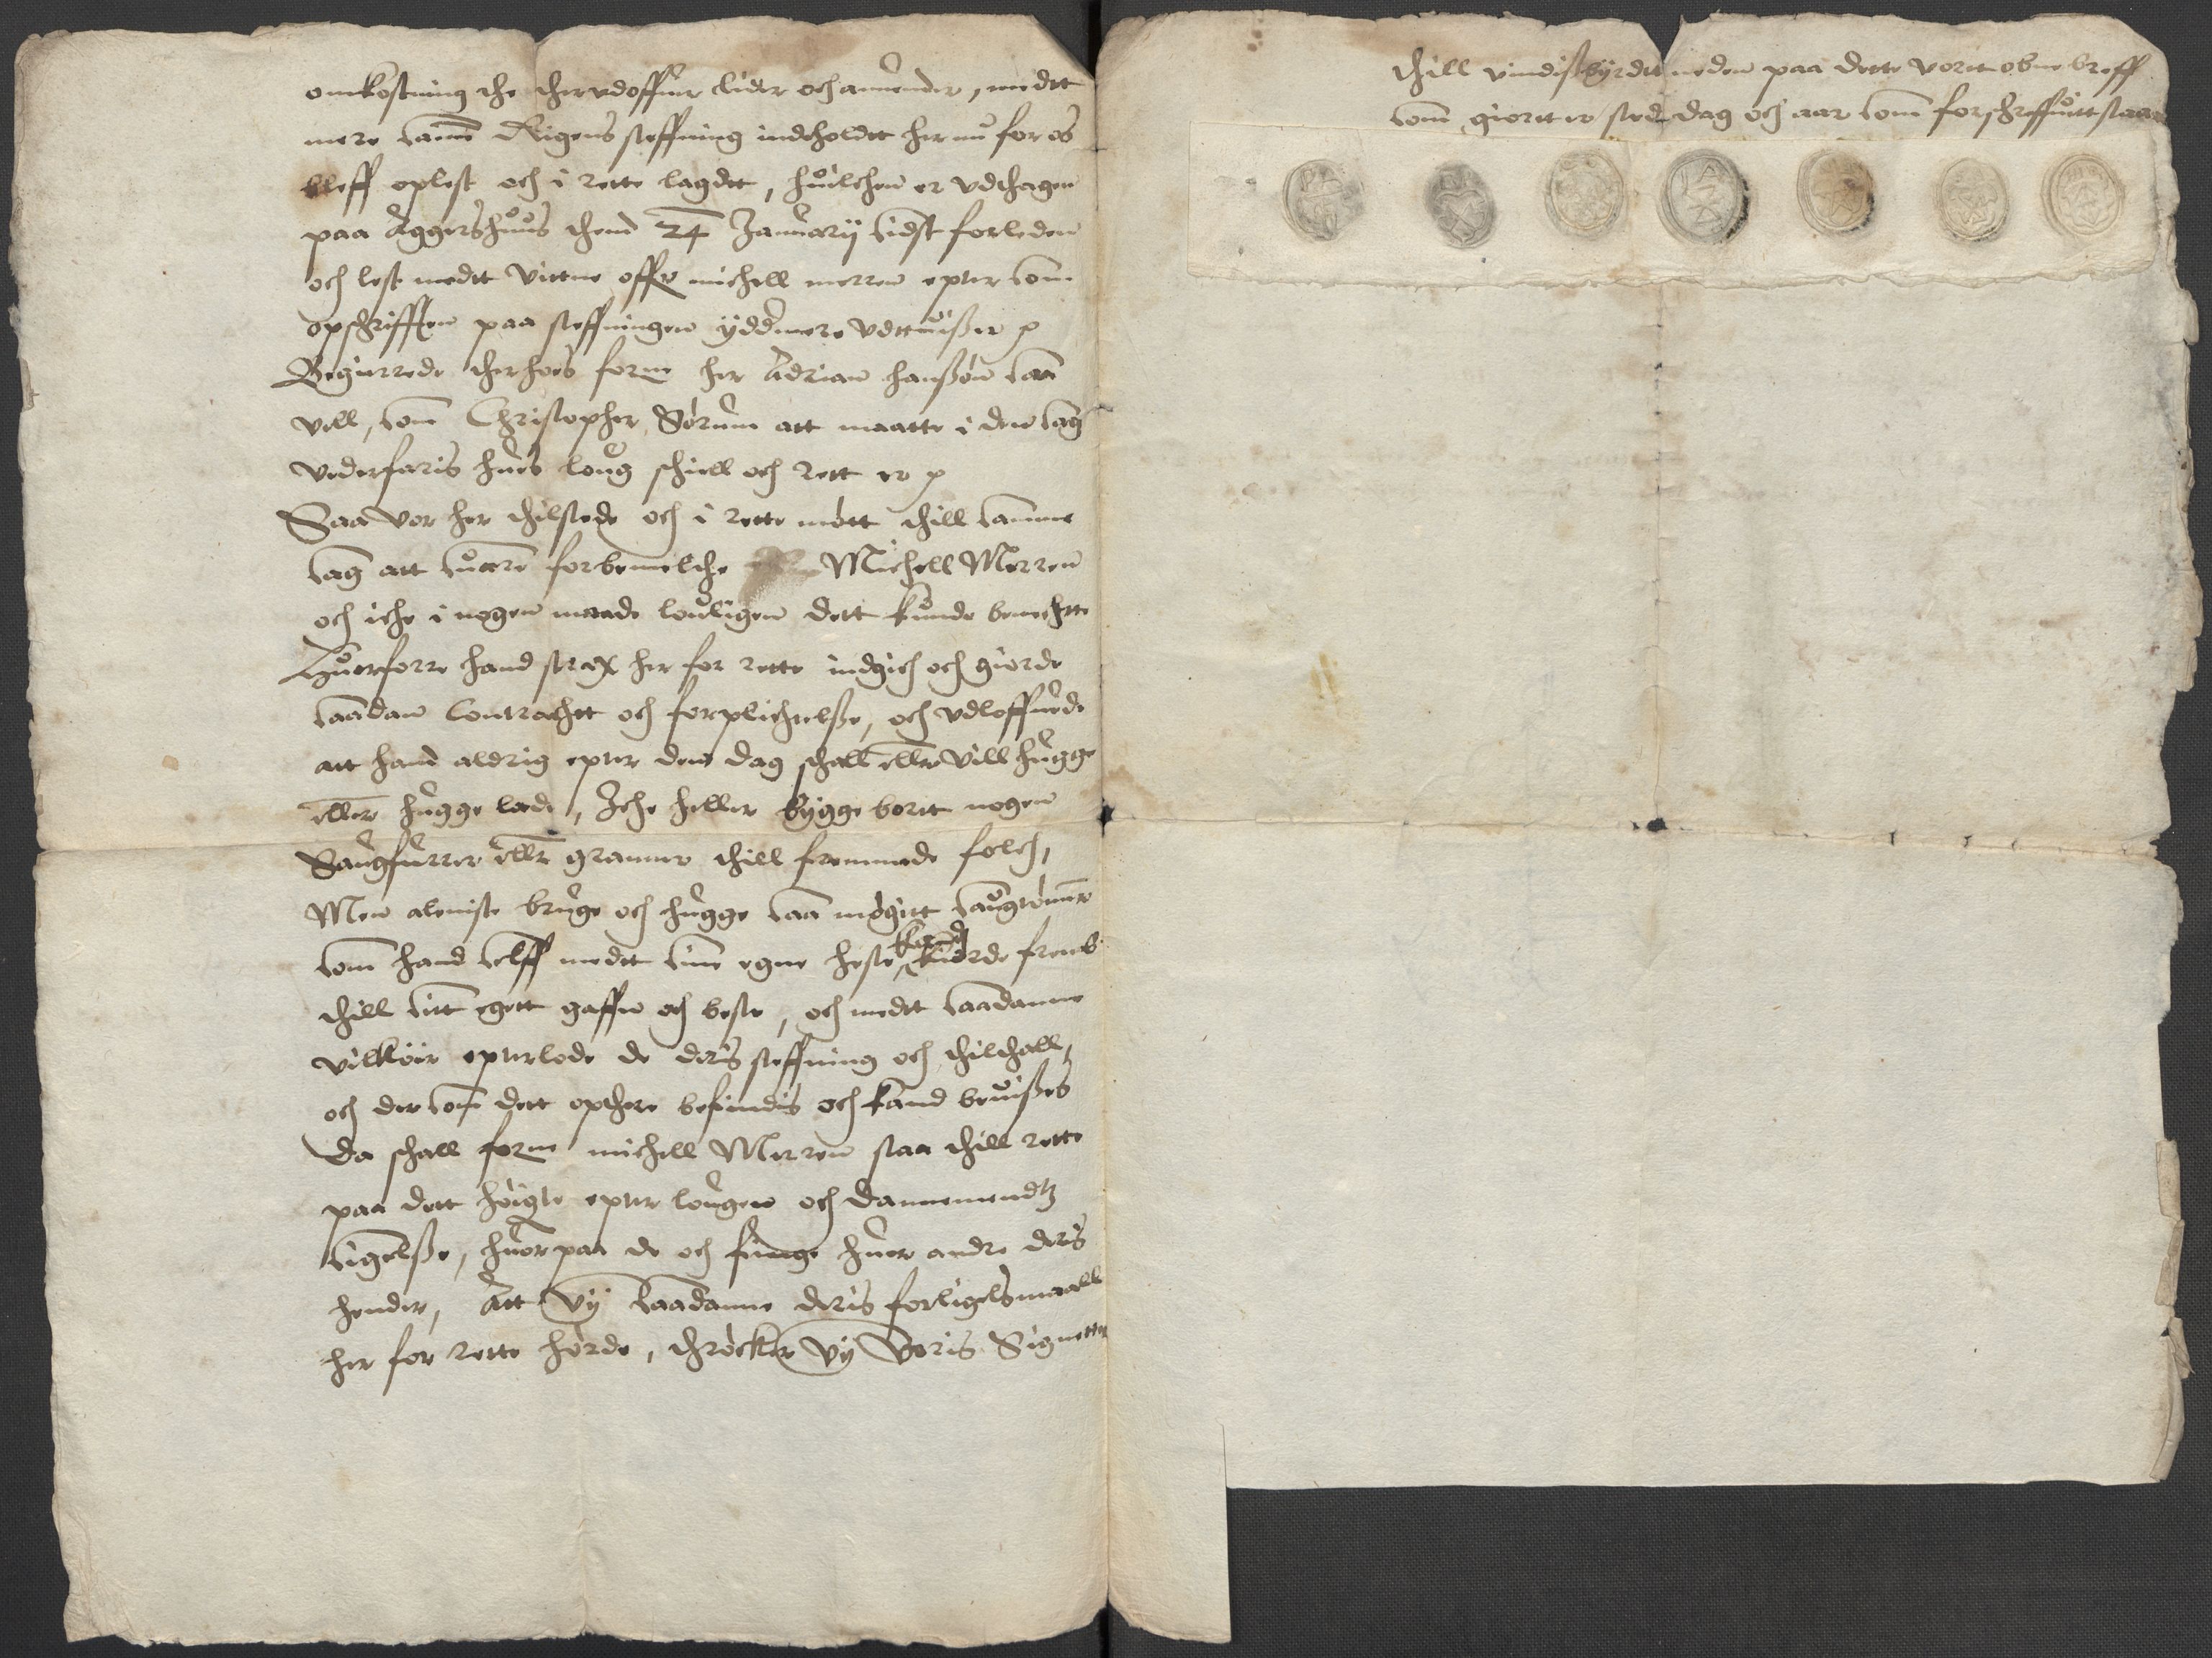 omkostning the therudoffuer lider och anuender, medtt
mere samme Rigens steffning indeholdtt her nu for os
bleff oplest och i rette lagdtt, huilchen er vdthagen
paa Aggershuus thend 24 Januarij sidst forleden
och lest medtt vittne offr michell merren epter som
opschrifften paa steffningen ÿddmere vdttuisser
Begierrede therhoes forne her Adrian hanssøn saa
vell, som Christopher Sørum att maatte i den sag
vederfaris hues loug schiell och rett er
Saa vor her thilstede och i rette møtt thill samme
sag att suare forbemelthe Michell Merren
och iche i nogen maade loulligen dett kunde benechtte
Huorforre hand strax her for rette indgich och giorde
saadan Contrachtt och forplichtelsse, och vdloffuede
att hand aldrig epter den dag schall eller vill hugge
eller hugge lade, Iche heller bygge bortt nogen
Saugfurrer eller granner thill fremmede folch,
Men aleniste bruge och hugge saa møgitt saugtømmer
som hand selff medtt sinne egne heste kand kiørde fremb
thill sitt egett gaffn och beste, och medtt saadanne
vilkoir epterlode de deris steffning och thilthall,
och der som dett opthere befindis och kand beuisses
da schall forne michell Merren staa thill rette
paa dett høigte epter lougen och dannemendtz
sigelsse, huorpaa de och finnge huer andre deris
hender, Att vij saadanne deris forligelsmaall
her for rette hørde, thrøcker vij Voris Signetter
thill vindissbyrdtt neden paa dette vortt obne breff
som giortt er sted dag och aar som forschreffuitt staar